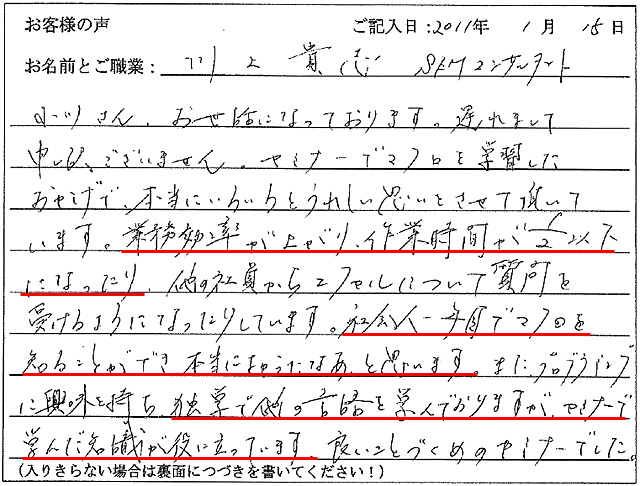 お客様の声 ご記入日:2011年 1月 15日
お名前とご職業: 川上 貴志 SEOコンサルタント
小川さん、お世話になっております。遅れまして
申し訳ございません。セミナーでマクロを学習した
おかげで、本当にいろいろとうれしい思いをさせて頂いて
います。業務効率が上がり、作業時間が1/2以下
になったり、他の社員からエクセルについて質問を
受けるようになったりしています。社会人一年目でマクロを
知ることができ本当によかったなあ、と思います。またプログラミング
に興味を持ち、独学で他の言語を学んでおりますが、セミナーで
学んだ知識が役に立っています。良いことづくめのセミナーでした。
(入りきらない場合は裏面につづきを書いてください!)